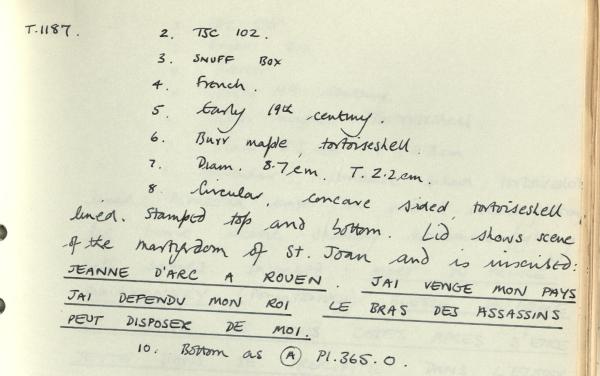 T.1187. 2. TSC 102.
3. SNUFF BOX
4. French.
5. Early 19th century.
6. Burr maple, tortoiseshell.
7. Diam. 8.7cm. T. 2.2cm.
8. Circular, concave sided, tortoiseshell
lined. Stamped top and bottom. Lid shows scene
of the martyrdom of St. Joan and is inscribed:
JEANNE D'ARC A ROUEN. JAI VENGE MON PAYS
JAI DEFENDU MON ROI LE BRAS DES ASSASSINS
PEUT DISPOSER DE MOI.
10. Bottom as A Pl.365.O.